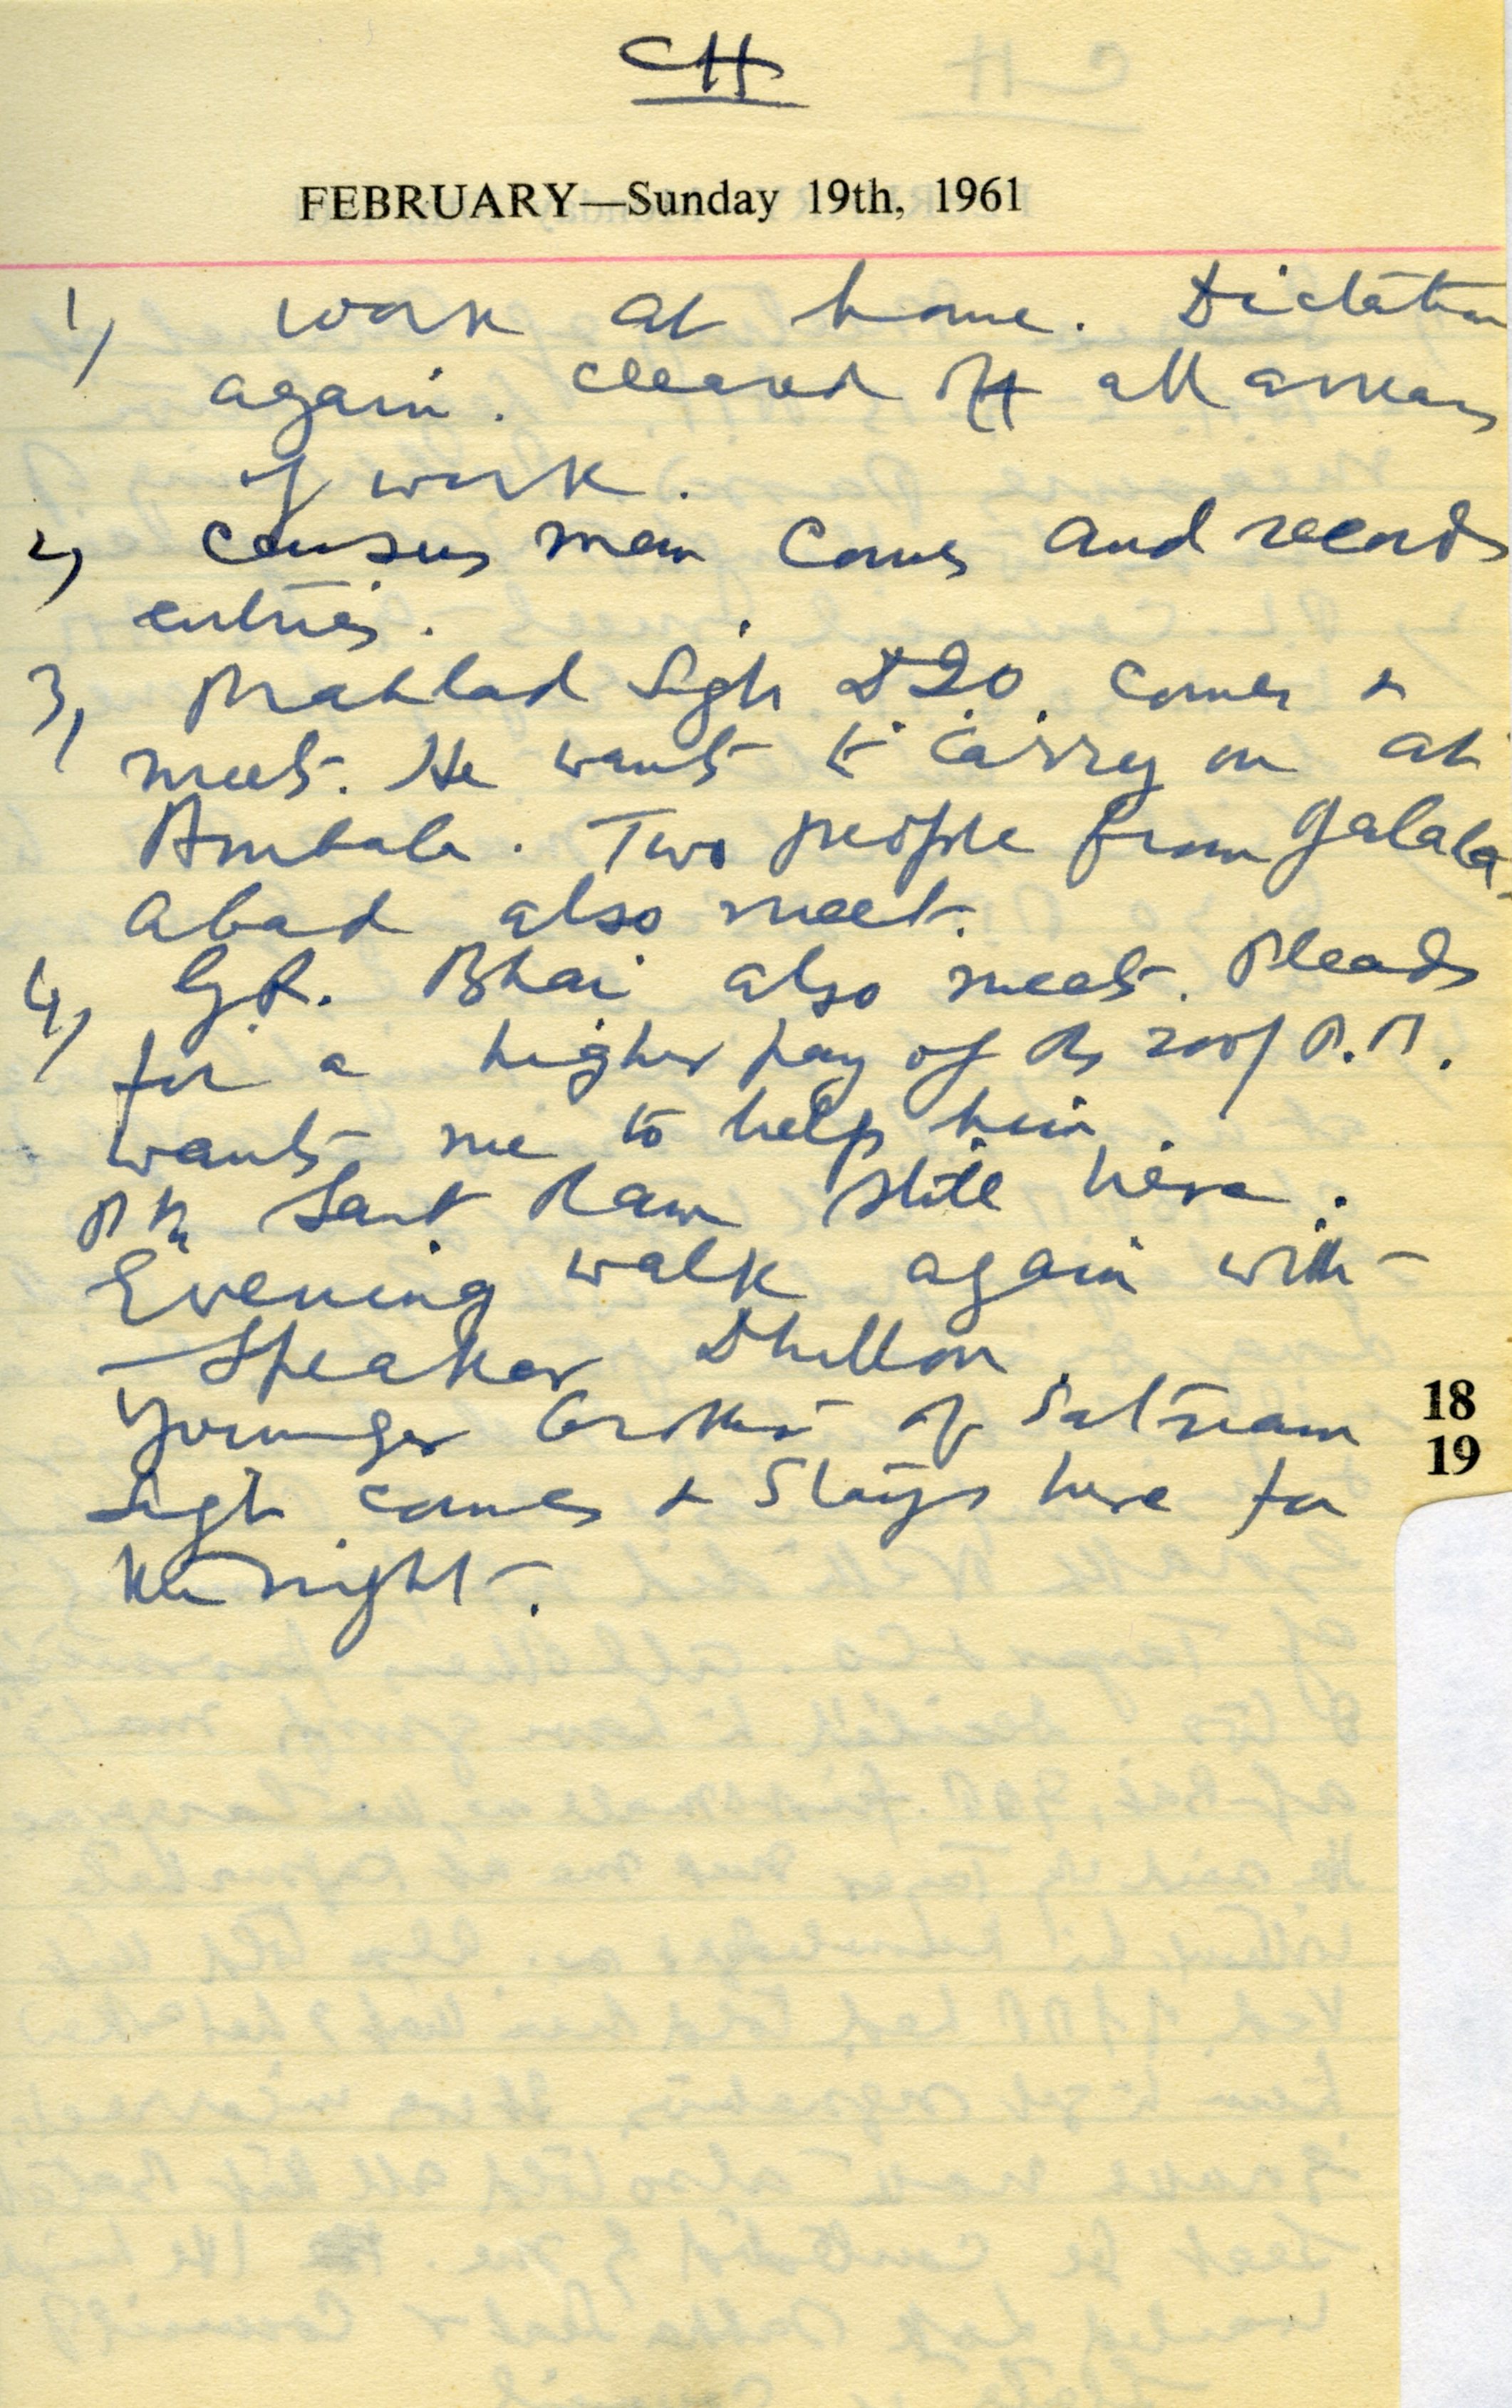 CH
FEBRUARY—Sunday 19th, 1961
1) Work at home. Dictation
again. Cleared off all arrears
of work.
2) Census men comes and records
entries.
3) Prahlad Sigh comes &
meets. He wants to carry on at
Ambala. Two people from Jalala-
abad also meet.
4) Bhai also meets. Pleads
for a higher pay of Rs 200/ P.M.
wants me to help him.
Sant Ram still here.
Evening walk again with
Speaker Dhillon.
Younger brother of Satnam
Sigh comes & stays here for
the night.
18
19